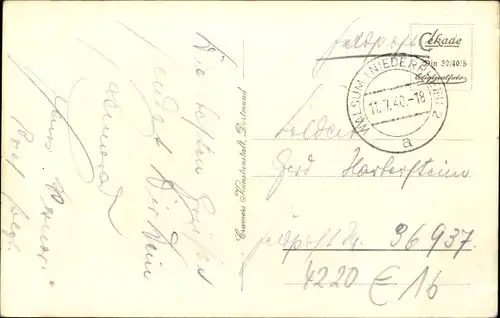 Die besten Grüße
sendet Dir Dein
Kamerad
Hans
Brief folgt.
Cramers Kunstanstalt, Dortmund
Feldpost
Cekade
Din 32/40/5
Originalfoto
WALSUM (NIEDERRHEIN) 2
11.7.40.-18
a
Gerd
Feldpost Nr. 36937
4220 E 16